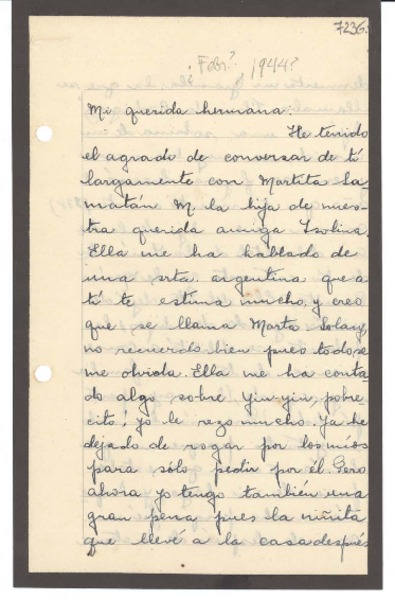 7236.
¿Febr? 1944?
Mi querida hermana:
He tenido
el agrado de conversar de tí
largamente con Martita Sa-
matán M. la hija de nues-
tra querida amiga Isolina.
Ella me ha hablado de
una srta. argentina que a
tí te estima mucho, y creo
que se llama Marta Solary,
no recuerdo bien pues todo se
me olvida. Ella me ha conta-
do algo sobre Yin-yin, pobre-
cito! yo le rezo mucho. Ya he
dejado de rogar por los míos
para sólo pedir por él. Pero
ahora yo tengo también una
gran pena pues la niñita
que llevé a la casa después